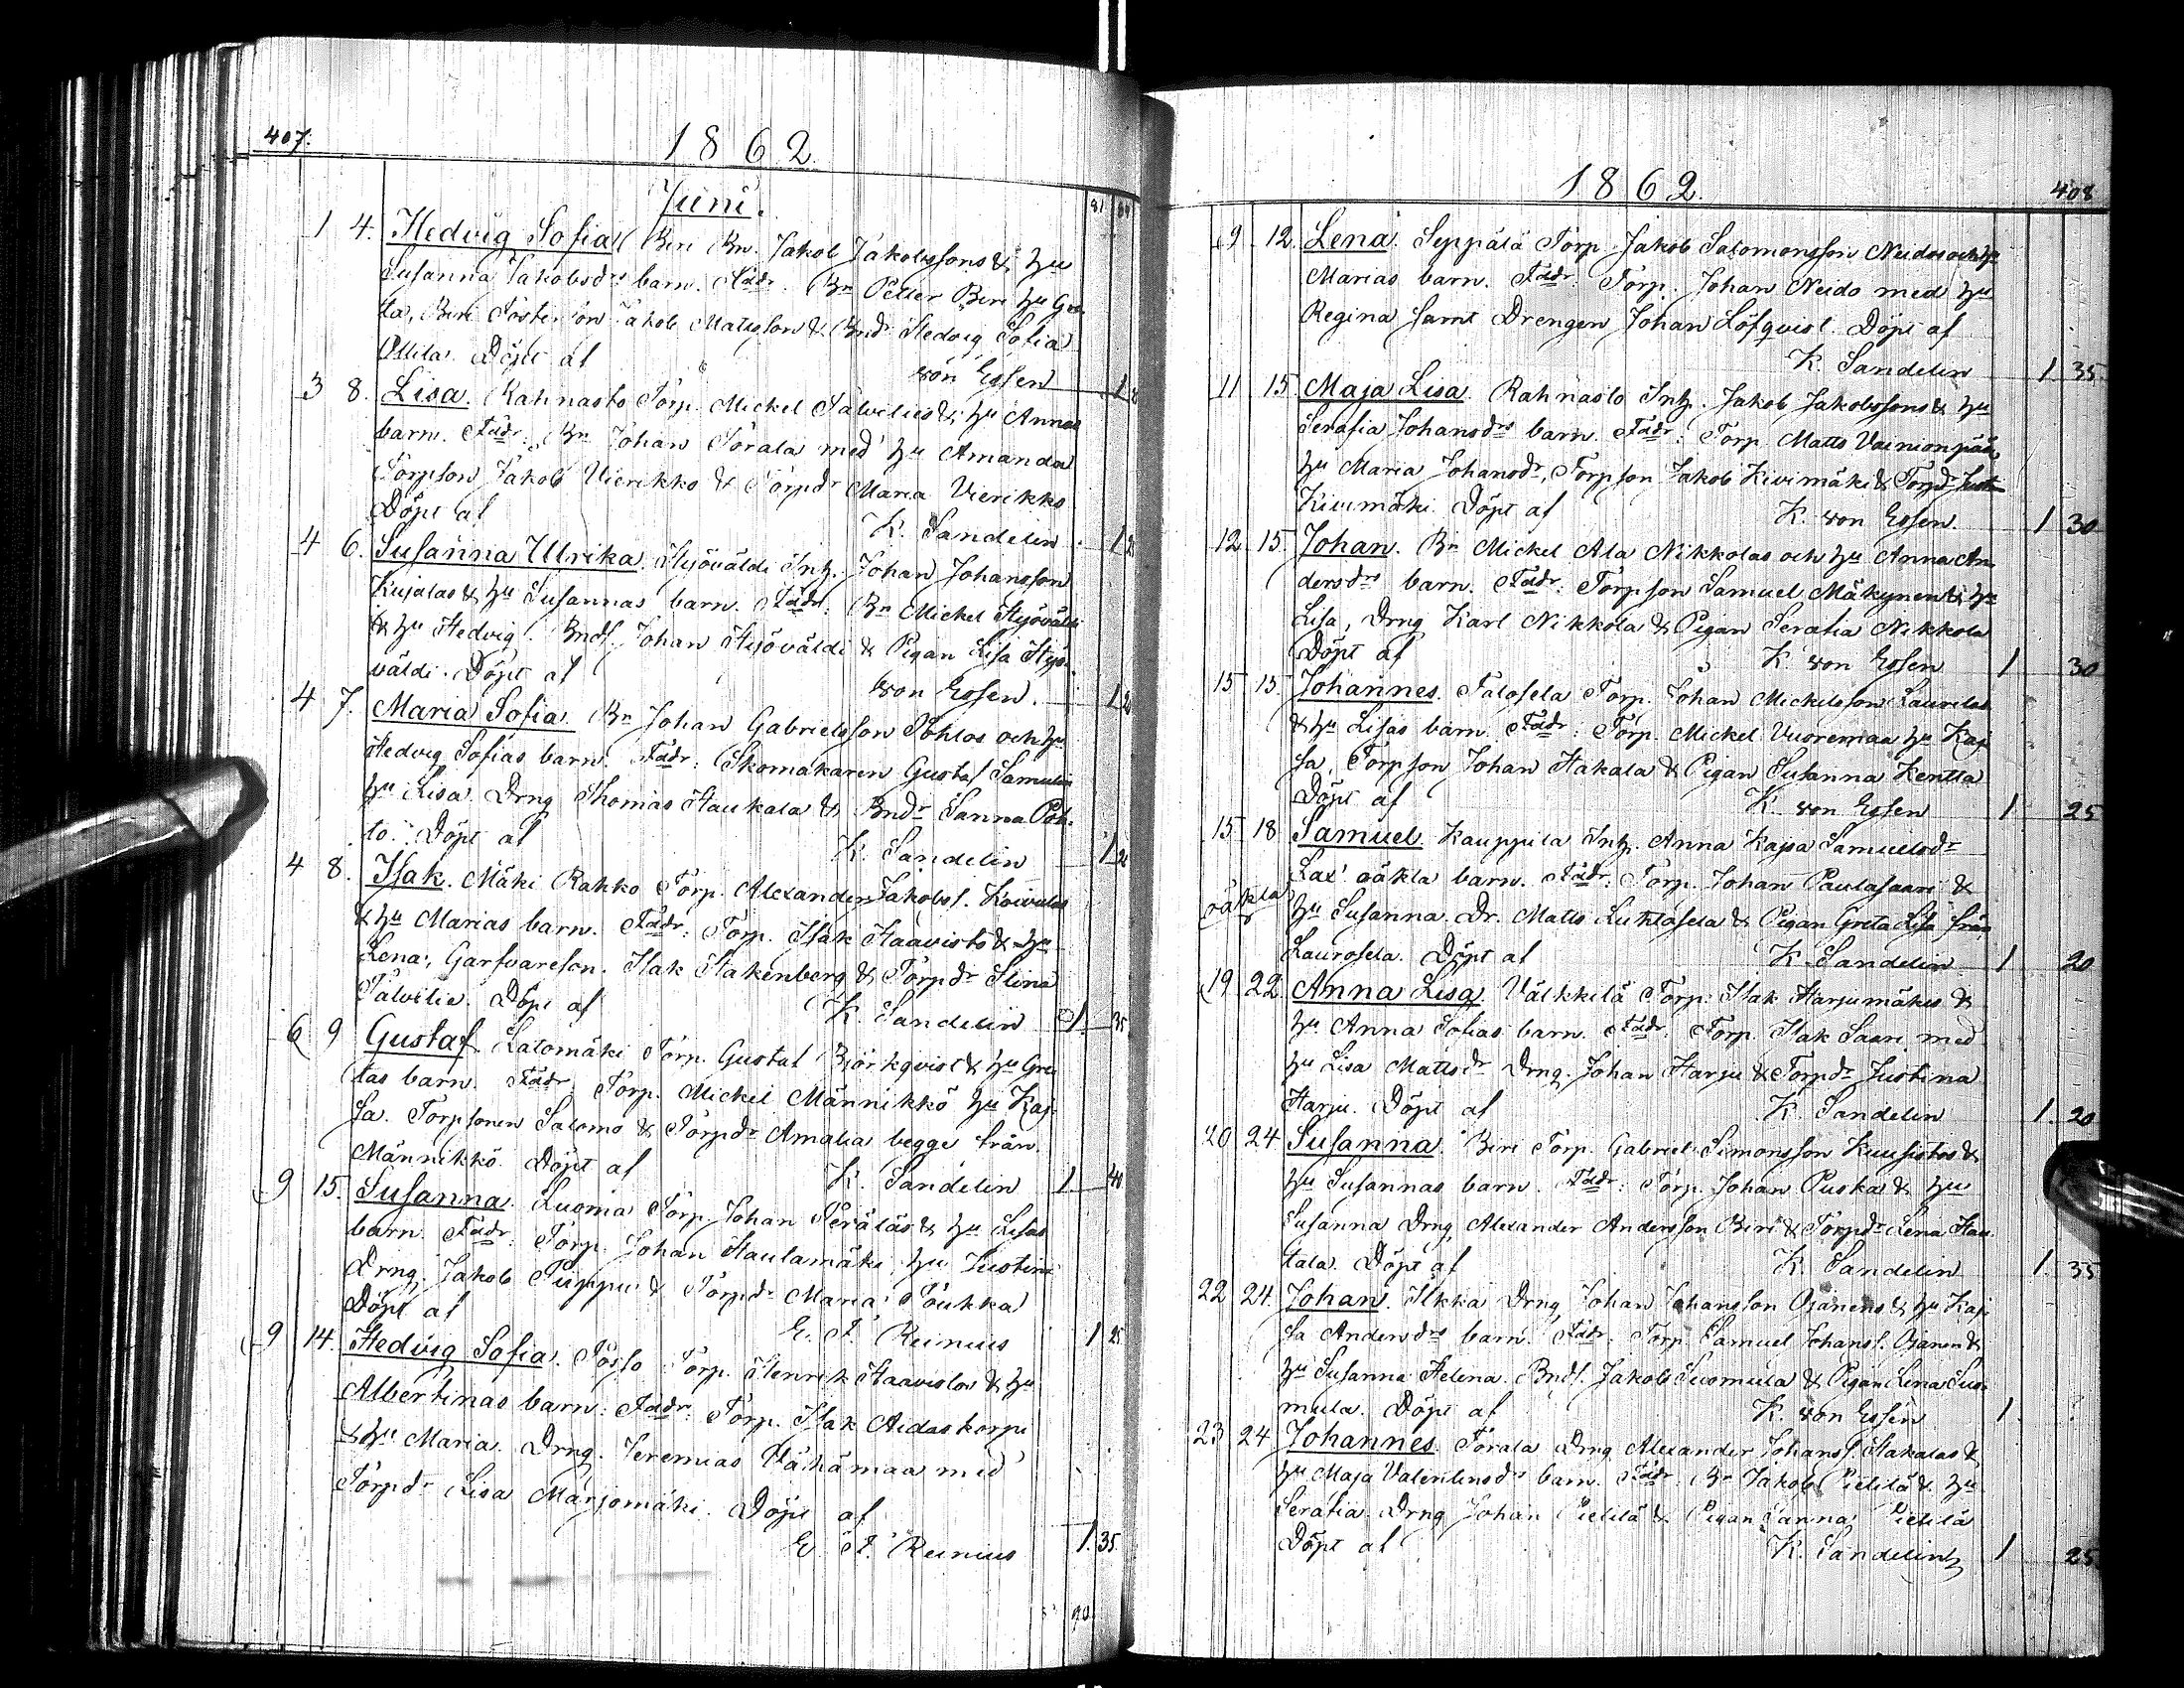 407.
1862.
Juni.
1 4. Hedvig Sofia Beri Bn. Jakob Jakobssons & hu
Susanna Jakobsdrs barn. Fadr. Bn Petter Beri hu Gre-
ta, Beri Fosterson Jakob Matsson & Bndr Hedvig Sofia
Ollila. Döpt af von Essen 1
3 8. Lisa. Rahnasto Torp. Mickel Talvities & hu Annas
barn. Fadr: Bn Johan Torala med hu Amanda
Torpson Jakob Vierikko & Torpdr Maria Vierikko
Döpt af K. Sandelin 1
4 6. Susanna Ulrika. Hyöväldi Inh. Johan Johansson
Kujalas & hu Susannas barn. Fadr: Bn Mickel Hyöväldi
& hu Hedvig. Bnds. Johan Hyöväldi & Pigan Lisa Hyö-
väldi. Döpt af von Essen. 1
4 7. Maria Sofia. Bn Johan Gabrielsson Pohtos och hu
Hedvig Sofias barn. Fadr: Skomakaren Gustaf Samulin
hu Lisa. Drng Thomas Haukala & Bndr Sanna Poh-
to. Döpt af K. Sandelin 1
4 8. Isak. Mäki Rahko Torp. Alexander Jakobs. Koivulas
& hu Marias barn. Fadr: Torp. Isak Haavisto & hu
Lena, Garfvareson. Isak Hakenberg & Torpdr Stina
Talvitie. Döpt af K. Sandelin 1 35
6 9 Gustaf. Latomäki Torp. Gustaf Björkqvist & hu Gre-
tas barn. Fadr. Torp. Mickel Männikkö hu Kaj-
sa. Torpsonen Salomo & Torpdr Amalia begge från
Männikkö. Döpt af K. Sandelin 1 40
9 15. Susanna. Luoma Torp. Johan Peräläs & hu Lisas
barn. Fadr: Torp. Johan Hautamäki, hu Justina
Drng. Jakob Puppu & Torpdr Maria Poukka
Döpt af E. F. Reinius 1 25
9 14. Hedvig Sofia. Posso Torp. Henrik Haavistos & hu
Albertinas barn: Fadr: Torp. Isak Aidaskorpi
& hu Maria. Drng. Jeremias Vähämaa med
Torpdr Lisa Marjomäki. Döpt af
E. F. Reinius 1. 35.
1862. 408
9 12. Lena. Seppälä Torp. Jakob Salomonsson Neidos och hu
Marias barn. Fadr: Torp. Johan Neido med hu
Regina samt Drengen Johan Löfqvist. Döpt af
K. Sandelin 1. 35.
11 15. Maja Lisa. Rahnasto Inh. Jakob Jakobssons & hu
Serafia Johansdrs barn. Fadr: Torp. Matts Vainionpää,
hu Maria Johansdr, Torpson Jakob Kivimäki & Torpdr
Kivimäki. Döpt af K. von Essen. 1 30
12 15. Johan. Bn Mickel Ala Nikkolas och hu Anna An-
dersdrs barn. Fadr: Torpson Samuel Mäkynen & hu
Lisa, Drng Karl Nikkola & Pigan Serafia Nikkola
Döpt af K. von Essen 1 30
15 15. Johannes. Talosela Torp. Johan Mickelsson Laurilas
& hu Lisas barn. Fadr: Torp. Mickel Vuorenmaa hu Kaj-
sa, Torpson Johan Hakala & Pigan Susanna Kentta
Döpt af K. von Essen 1 25
15 18 Samuel. Kauppila Inh. Anna Kajsa Samuelsdr
Lax' oäkta barn. Fadr: Torp. Johan Paulasaari &
oäkta hu Susanna. Dr. Matts Luhtasela & Pigan Greta Lisa från
Laurosela. Döpt af K. Sandelin 1 20
19 22 Anna Lisa. Välkkilä Torp. Isak Harjumäkis &
hu Anna Sofias barn. Fadr: Torp. Isak Saari med
hu Lisa Mattsdr Drng. Johan Harju & Torpdr Justina
Harju. Döpt af K. Sandelin 1. 20
20 24 Susanna. Beri Torp. Gabriel Simonsson Kuusistos &
hu Susannas barn. Fadr: Torp. Johan Puska & hu
Susanna Drng Alexander Andersson Beri & Torpdr Lena Hau-
tala. Döpt af K. Sandelin 1. 35
22 24. Johan. Ilkka Drng Johan Johansson Ojanens & hu Kaj-
sa Andersdrs barn. Fadr: Torp. Samuel Johans. Ojanen &
hu Susanna Helena. Bnds. Jakob Suomula & Pigan Lena Suo-
mula. Döpt af K. von Essen 1.
23 24 Johannes. Torala Drng Alexander Johans. Hakalas &
hu Maja Valentinsdrs barn. Fadr: Bn Jakob Pietilä & hu
Serafia. Drng Johan Pietilä & Pigan Sanna Pietilä
Döpt af K. Sandelin 1 25